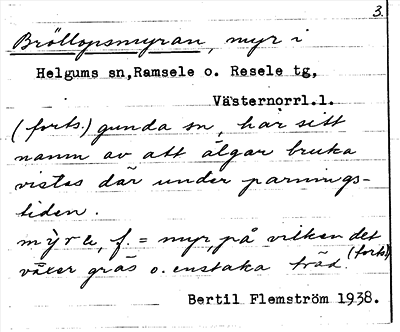 3.
Bröllopsmyran, myr i
Helgums sn,Ramsele o. Resele tg,
Västernorrl.l.
(forts.) gunda sn, har sitt
namn av att älgar bruka
vistas där under parnings-
tiden.
f. = myr, på vilken det
växer gräs o. enstaka träd. (forts)
Bertil Flemström 1938.